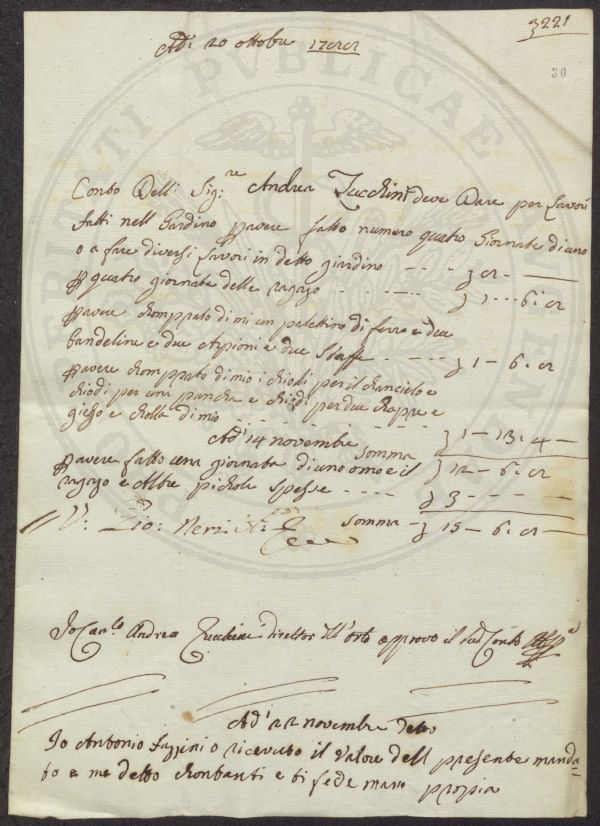 3221
30
Adi 20 ottobre
Conto Dell: Sig:re Andrea Zucchini deve dare per Lavori
fatti nell Gardino pavere fatto numero quatro Giornate di uno
o a fare diversi Lavori in detto giardino
p quatro giornate delle ragazo 1 6
pavere chomprato di mi un palettino di ferro e due
bandeline e due Arpioni e due Staffe 1 - 6
pavere chomprato di mio i chiodi per il chancielo e
chiodi per una pancha e chiodi per due chappe e
giesso e cholla di mio 1 - 13 - 4 -
Adi 14 novembre somma 12 - 6
pavere fatto una giornata di uno omo e il
ragazo e Altre pichole spesse 3
V: Gio: Neri somma 15 - 6
Io Can:co Andrea Zucchini direttor dell'orto approvo il sud Conto
Ad' 22 novembre detto
Io Antonio Fazzini o ricevuto il valore dell presente manda=
to a me detto chontanti e in fede mano propia